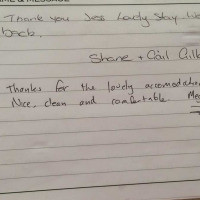 Thank you Jess lovely stay
back.
Shane + Gail Gilk
Thanks for the lovely accomodation
Nice, clean and comfortable.